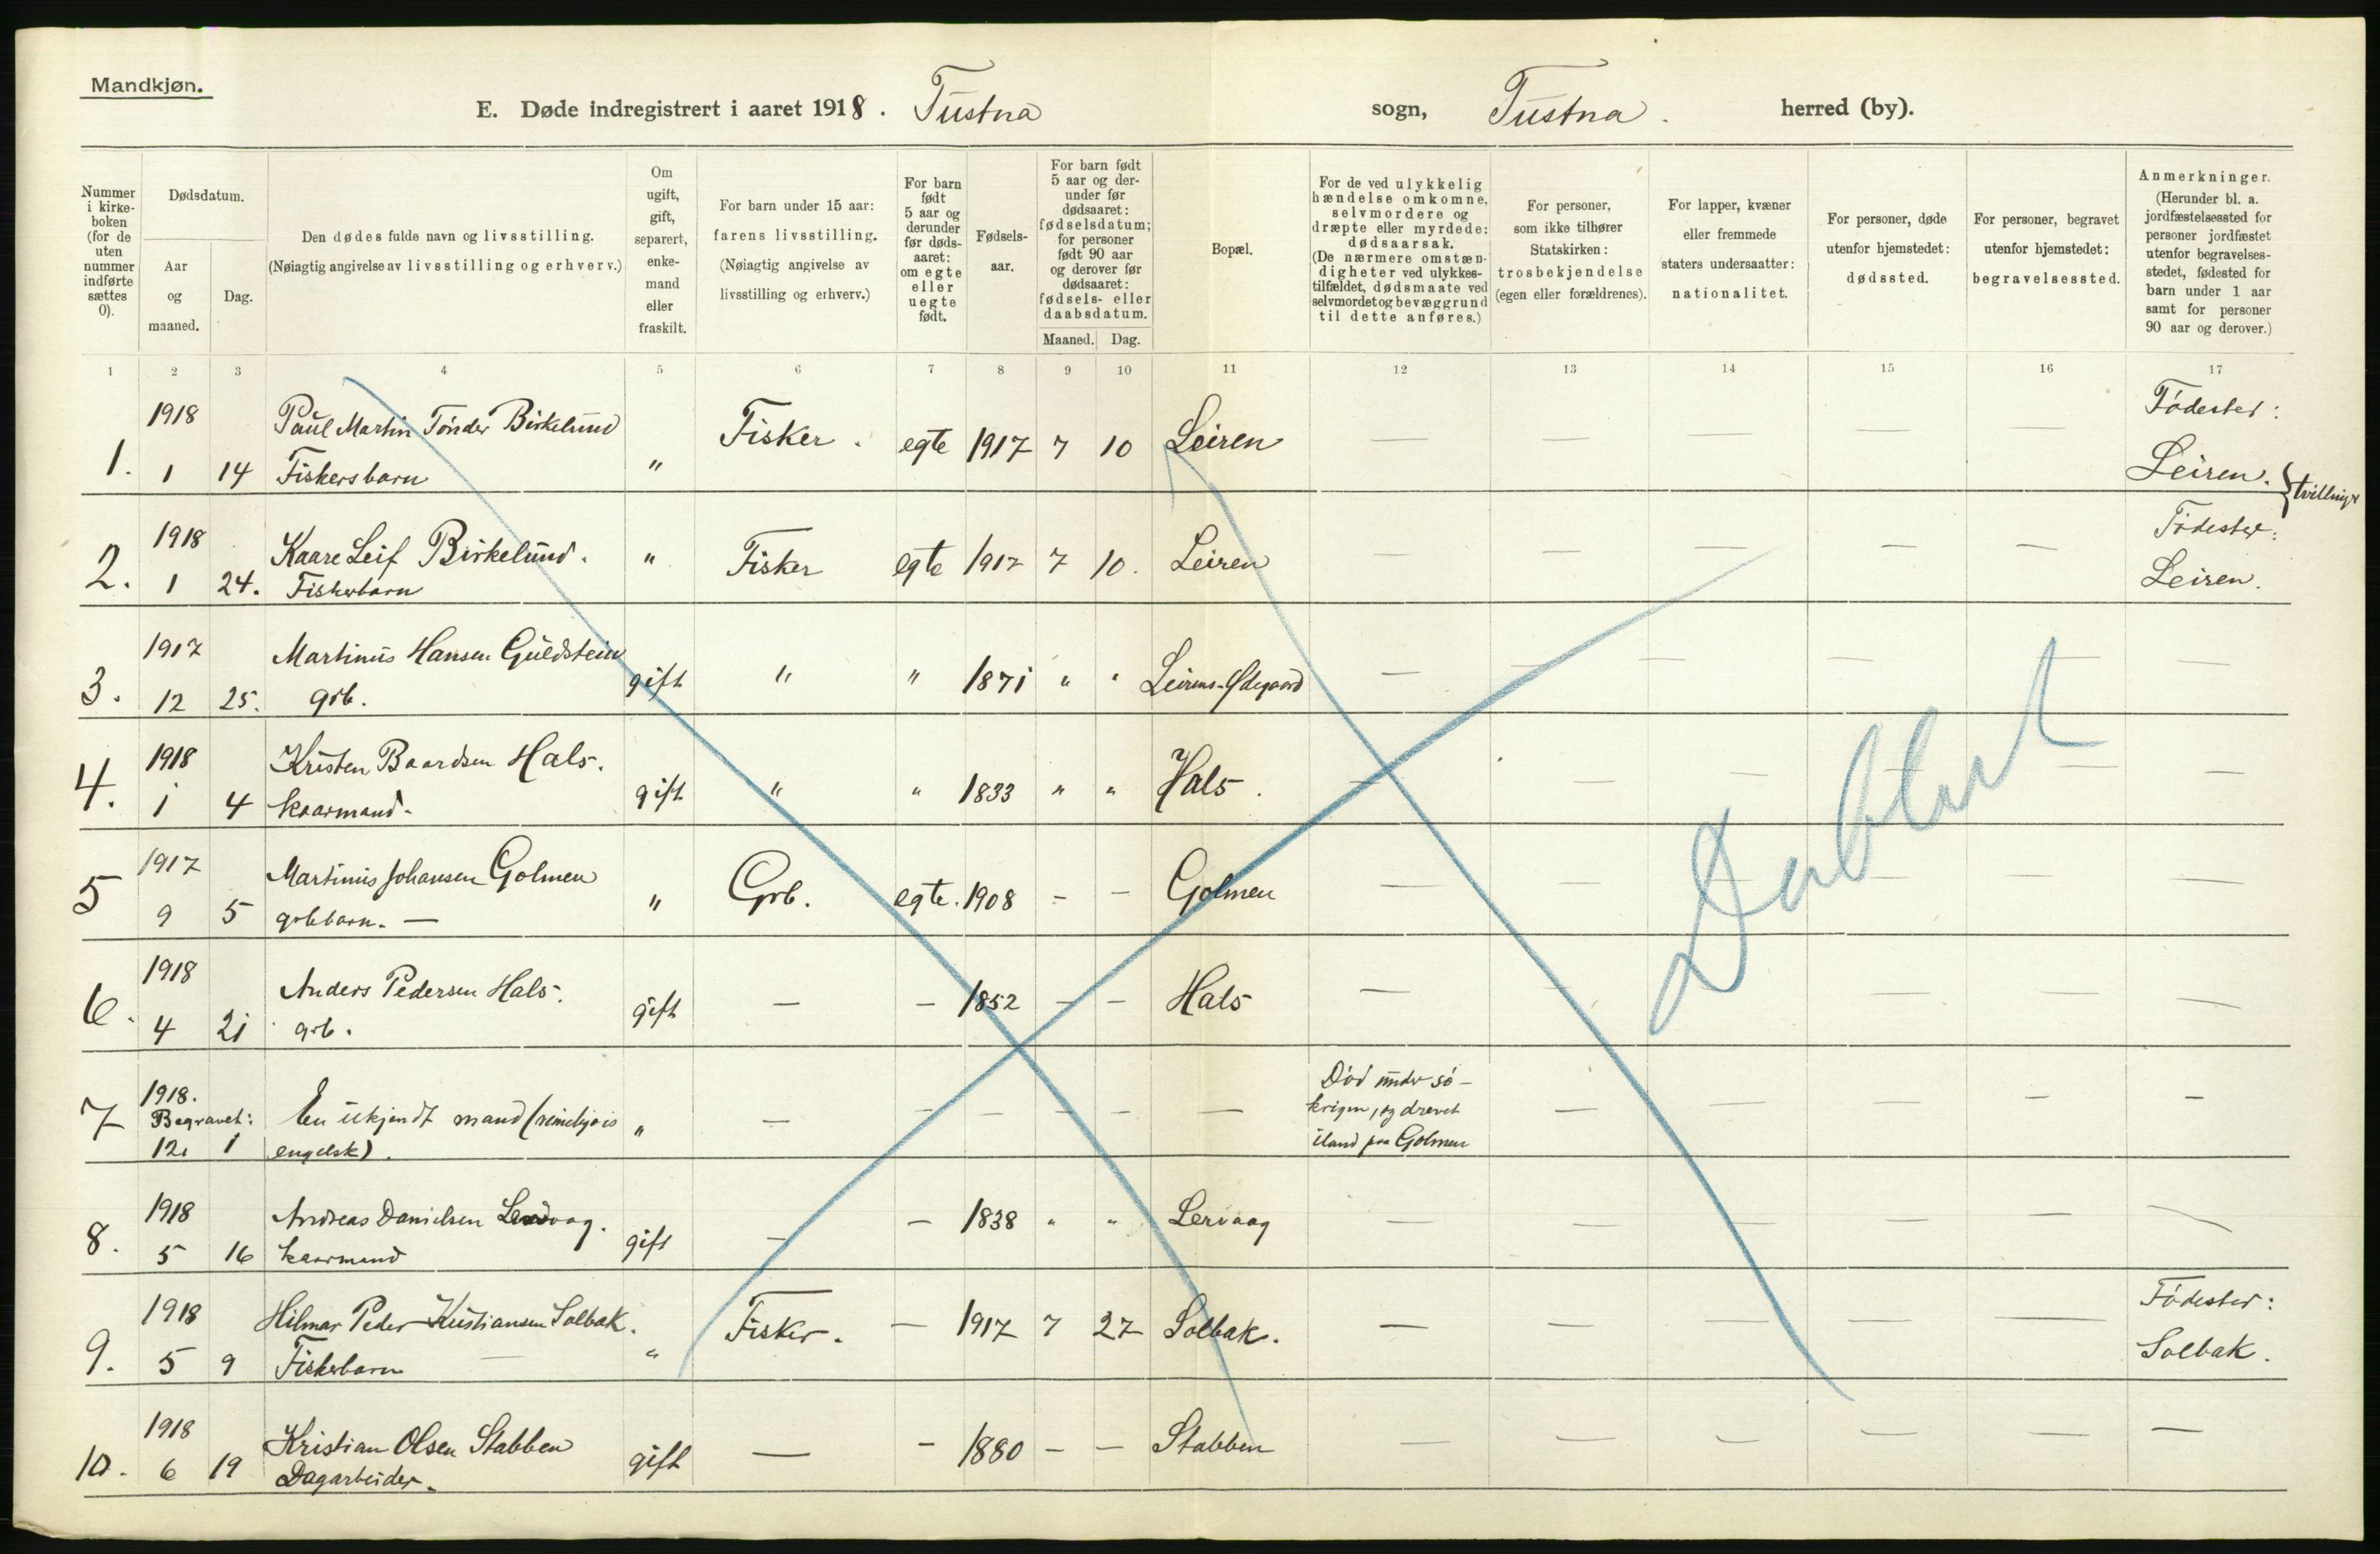 Mandkjøn.
E. Døde indregistrert i aaret 1918. Tustna sogn, Tustna. herred (by).
Nummer i kirkeboken (for de uten nummer indførte sættes 0).
Dødsdatum.
Aar og maaned.
Dag.
Den dødes fulde navn og livsstilling.
(Nøiagtig angivelse av livsstilling og erhverv.)
Om ugift, gift, separert, enkemand eller fraskilt.
For barn under 15 aar: farens livsstilling.
(Nøiagtig angivelse av livsstilling og erhverv.)
For barn født 5 aar og derunder før dødsaaret: om egte eller uegte født.
Fødselsaar.
For barn født 5 aar og derunder før dødsaaret: fødselsdatum; for personer født 90 aar og derover før dødsaaret: fødsels- eller daabsdatum.
Maaned. Dag.
Bopæl.
For de ved ulykkelig hændelse omkomne, selvmordere og dræpte eller myrdede: dødsaarsak.
(De nærmere omstændigheter ved ulykkestilfældet, dødsmaate ved selvmordet og bevæggrund til dette anføres.)
For personer, som ikke tilhører Statskirken: trosbekjendelse (egen eller forældrenes).
For lapper, kvæner eller fremmede staters undersaatter: nationalitet.
For personer, døde utenfor hjemstedet: dødssted.
For personer, begravet utenfor hjemstedet: begravelsessted.
Anmerkninger.
(Herunder bl. a. jordfæstelsessted for personer jordfæstet utenfor begravelsesstedet, fødested for barn under 1 aar samt for personer 90 aar og derover.)
1 2 3 4 5 6 7 8 9 10 11 12 13 14 15 16 17
1918 Paul Martin Tønder Birkelund Fisker. egte 1917 7 10 Leiren — — — — — Fødested:
1. 1 14 Fiskersbarn " Leiren. } tvillinger
1918 Kaare Leif Birkelund. " Fisker egte 1917 7 10. Leiren — — — — — Fødested:
2. 1 24. Fiskerbarn Leiren.
1917 Martinus Hansen Guldstein gift " " 1871 " " Leirens-Ødegaard — — — — — —
3. 12 25. grb.
1918 Kristen Baardsen Hals. gift " " 1833 " " Hals. — — — — — —
4. 1 4 kaarmand.
1917 Martinus Johansen Golmen " Grb. egte. 1908 - - Golmen — — — — — —
5 9 5 grbbarn. —
1918 Anders Pedersen Hals. gift — — 1852 - - Hals — — — — — —
6. 4 21 grb.
1918. Død under sø-
7 Begravet: En ukjendt mand (rimeligvis " — — — — — — krigen, og drevet — — — — —
12. 1 engelsk). iland paa Golmen
1918 Andreas Danielsen Lervaag. gift — — 1838 " " Lervaag — — — — — —
8. 5 16 kaarmand
1918 Hilmar Peder Kristiansen Solbak. " Fisker. — 1917 7 27 Solbak. — — — — — Fødested:
9. 5 9 Fiskerbarn — Solbak.
1918 Kristian Olsen Stabben gift — - 1880 - - Stabben — — — — — —
10. 6 19 Dagarbeider.
Dablut